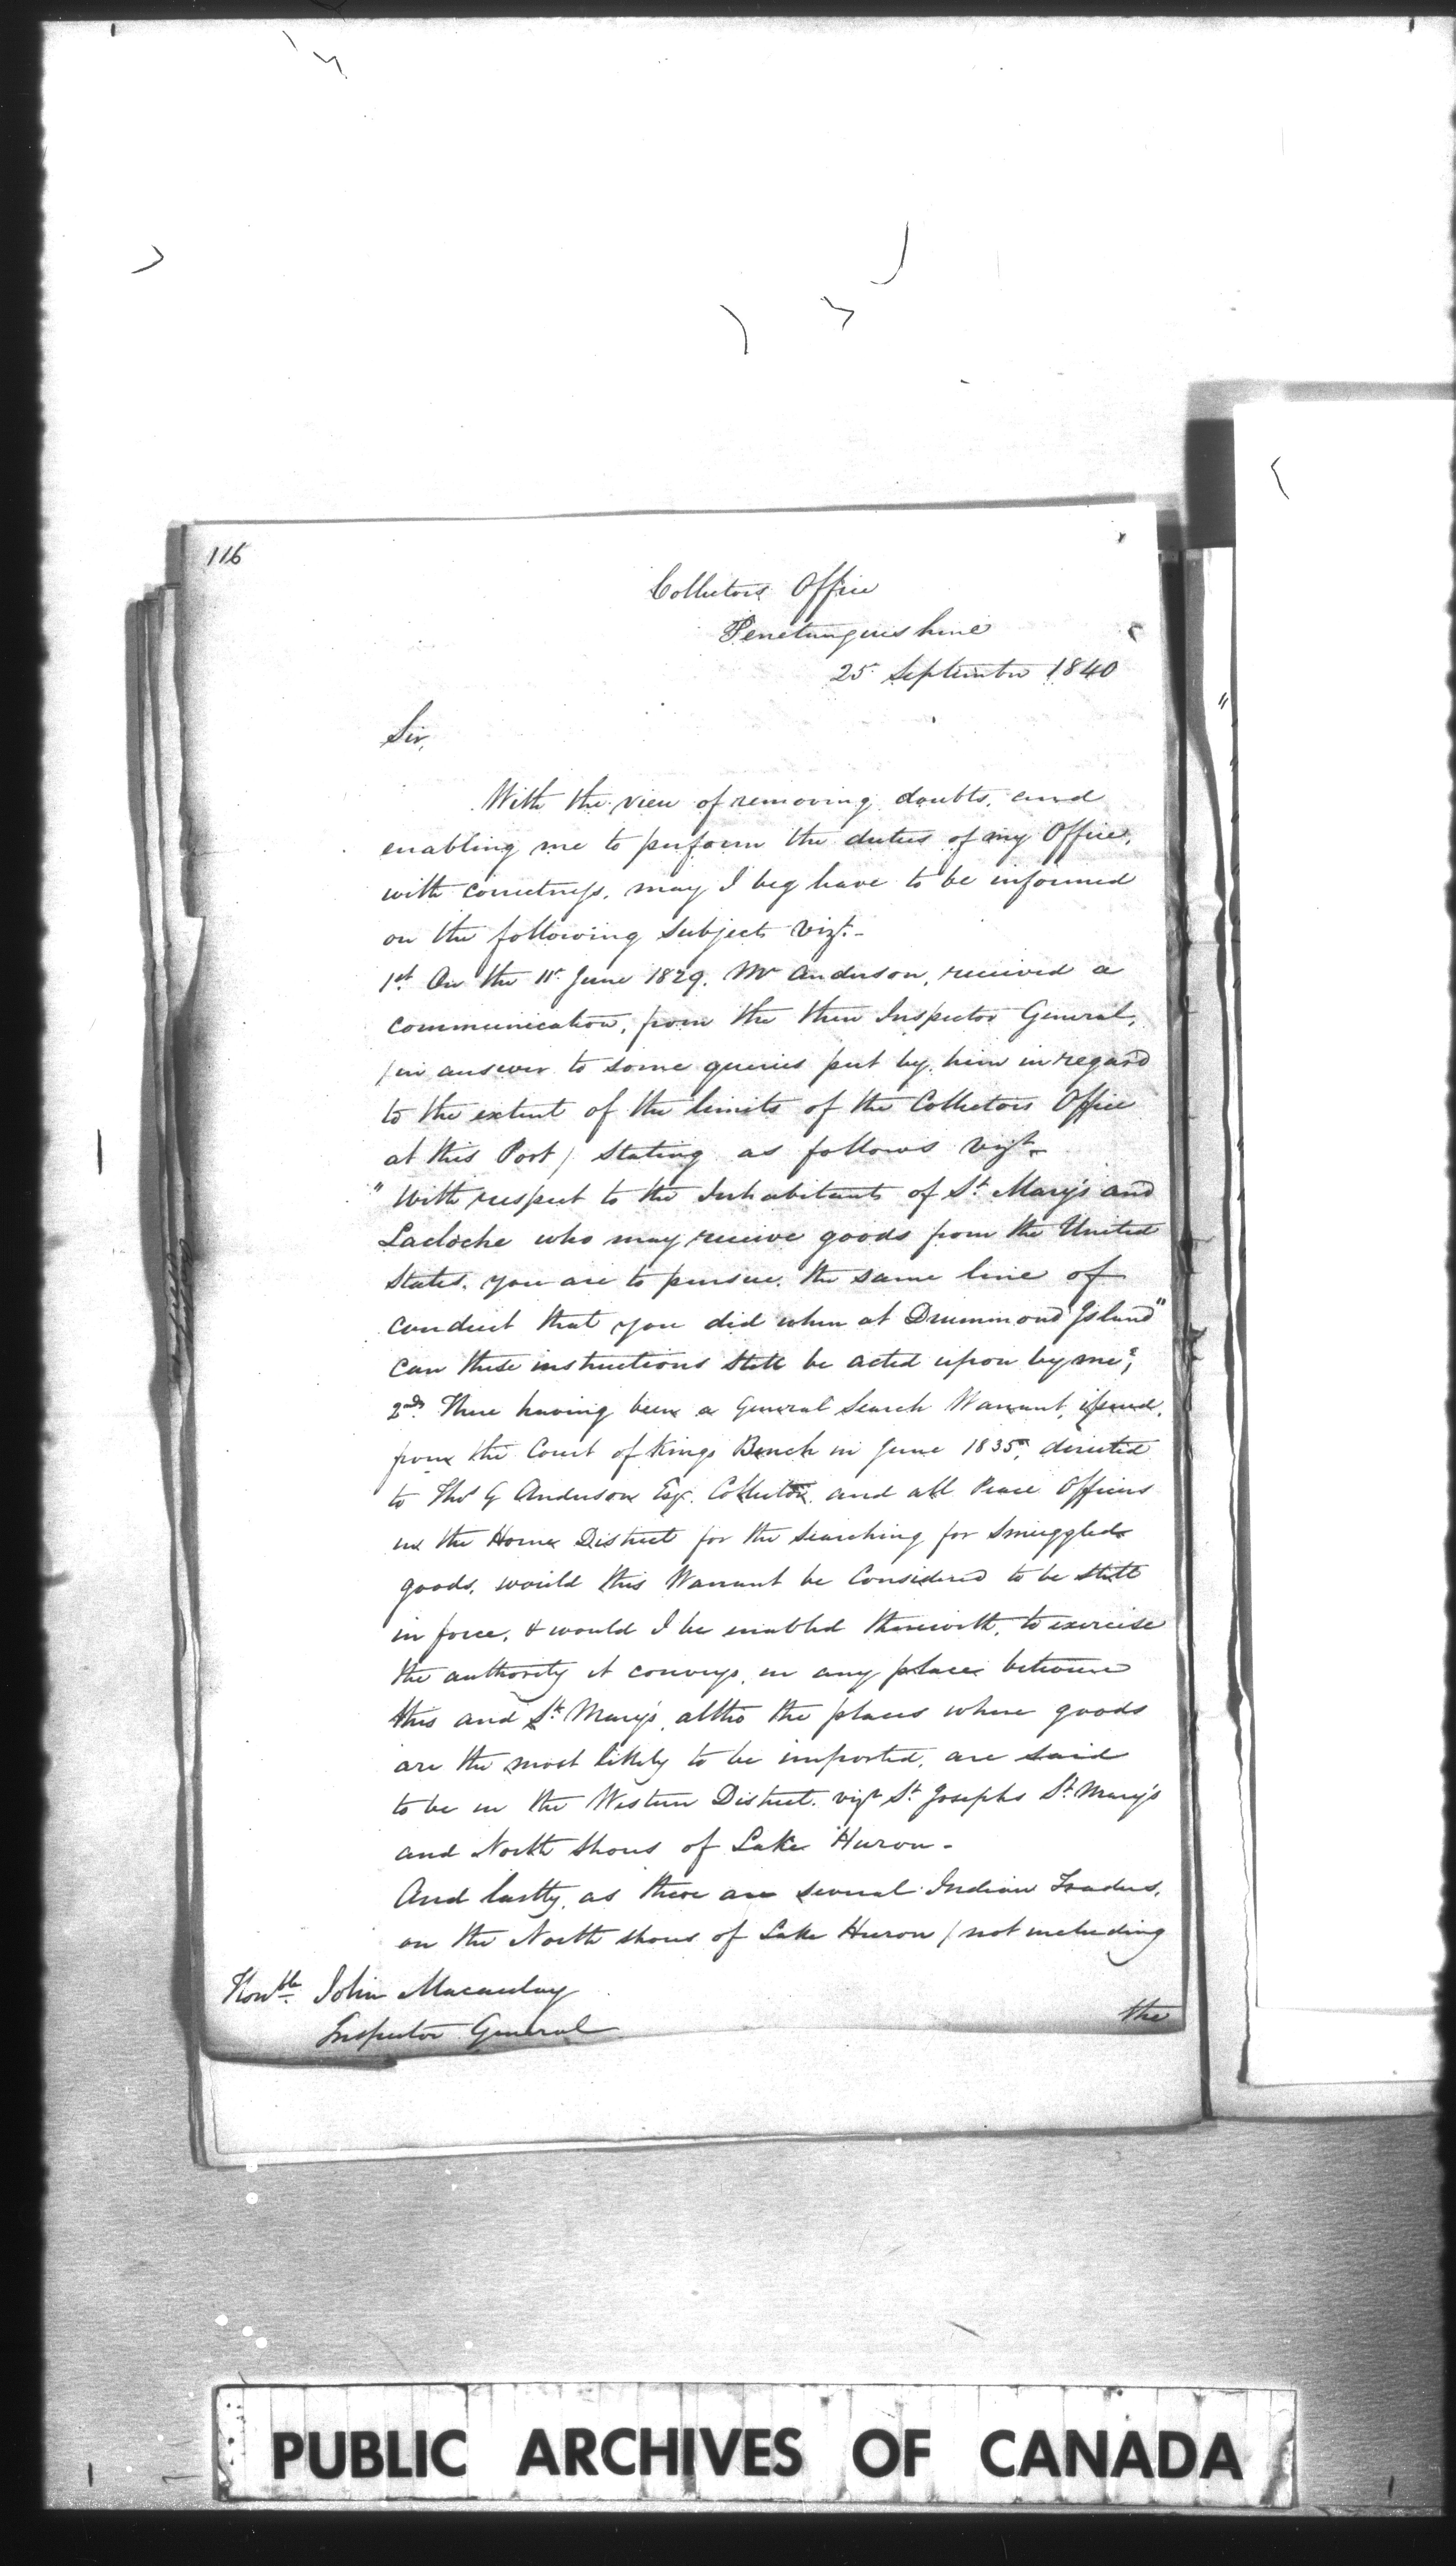 116
Collectors Office
Penetanguishine
25 September 1840
Sir,
With the view of removing doubts, and
enabling me to perform the duties of my Office,
with correctness, may I beg leave to be informed
on the following subjects vizt.-
1st. On the 11th June 1829. Mr Anderson, received a
communication, from the then Inspector General,
/in answer to some queries put by him in regard
to the extent of the limits of the Collectors Office
at this Port/ Stating as follows vizt-
"With respect to the Inhabitants of St. Mary's and
Lacloche who may receive goods from the United
States, you are to pursue, the same line of
conduct that you did when at Drummond Island"
Can these instructions still be acted upon by me?,
2nd. There having been a General Search Warrant, issued,
from the Court of Kings Bench in June 1835, directed
to Thos G Anderson Esqr. Collector, and all Peace Officers
in the Home District for the Searching for Smuggled
goods, would this Warrant be Considered to be still
in force, & would I be enabled therewith, to exercise
the authority it conveys, in any place between
this and St. Mary's, altho the places where goods
are the most likely to be imported, are said
to be in the Western District. vizt St. Josephs St. Mary's
and North Shores of Lake Huron -
And lastly, as there are several Indian Traders,
on the North shores of Lake Huron / not including
the
Honble. John Macaulay
Inspector General
PUBLIC ARCHIVES OF CANADA